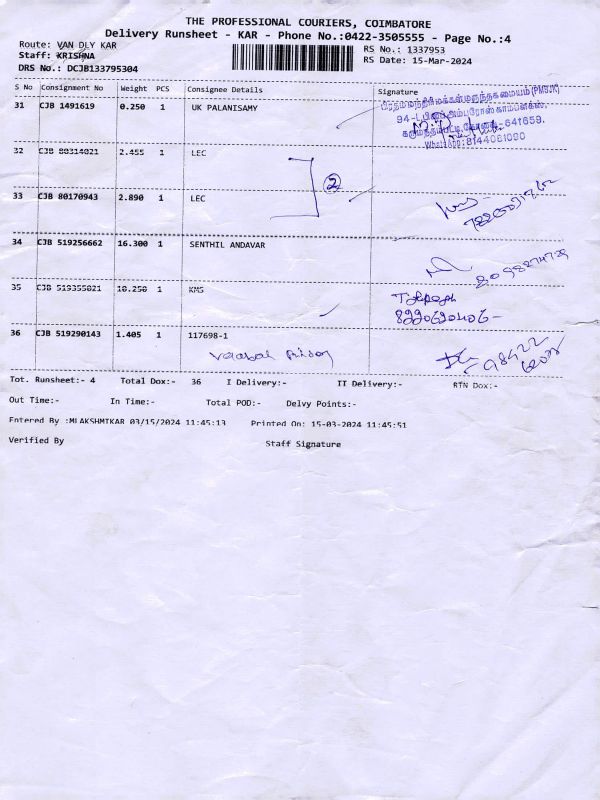 THE PROFESSIONAL COURIERS, COIMBATORE
Delivery Runsheet - KAR - Phone No.:0422-3505555 - Page No.:4
Route: VAN DLY KAR
RS No.: 1337953
Staff: KRISHNA
RS Date: 15-Mar-2024
DRS No.: DCJB133795304
S No Consignment No Weight PCS Consignee Details Signature
31 CJB 1491619 0.250 1 UK PALANISAMY
பிரதம மந்திரி மக்கள் மருந்தக மையம் (PMBJK)
641659.
WhatsApp: 8144081090
32 CJB 80314021 2.455 1 LEC
2
33 CJB 80170943 2.890 1 LEC
34 CJB 519256662 16.300 1 SENTHIL ANDAVAR
35 CJB 519355021 10.250 1 KMS
36 CJB 519290143 1.405 1 117698-1
Tot. Runsheet:- 4 Total Dox:- 36 I Delivery:- II Delivery:- RTN Dox:-
Out Time:- In Time:- Total POD:- Delvy Points:-
Entered By :MLAKSHMIKAR 03/15/2024 11:45:13 Printed On: 15-03-2024 11:45:51
Verified By Staff Signature